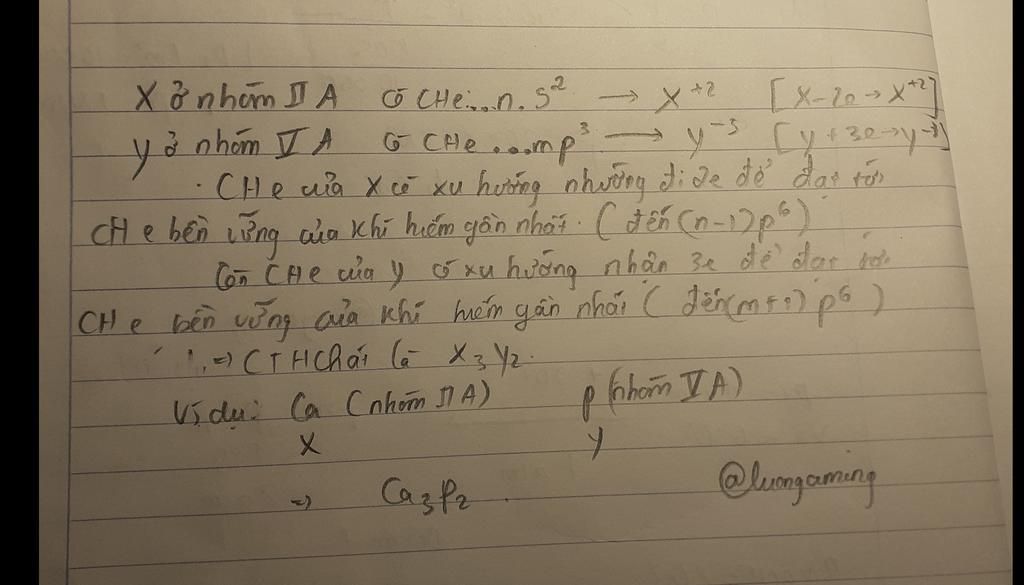 X ở nhóm II A có CHe...n.s² → X⁺² [X-2e→X⁺²]
Y ở nhóm V A có CHe...mp³ → Y⁻³ [Y+3e→Y⁻³]
. CHe của X có xu hướng nhường đi 2e để đạt tới
CHe bền vững của khí hiếm gần nhất. (đến (n-1)p⁶)
Còn CHe của Y có xu hướng nhận 3e để đạt tới
CHe bền vững của khí hiếm gần nhất (đến p⁶)
=> CTHChất là X₃Y₂.
Ví dụ: Ca (nhóm II A) P (nhóm V A)
X Y
=> Ca₃P₂.
@luongaming